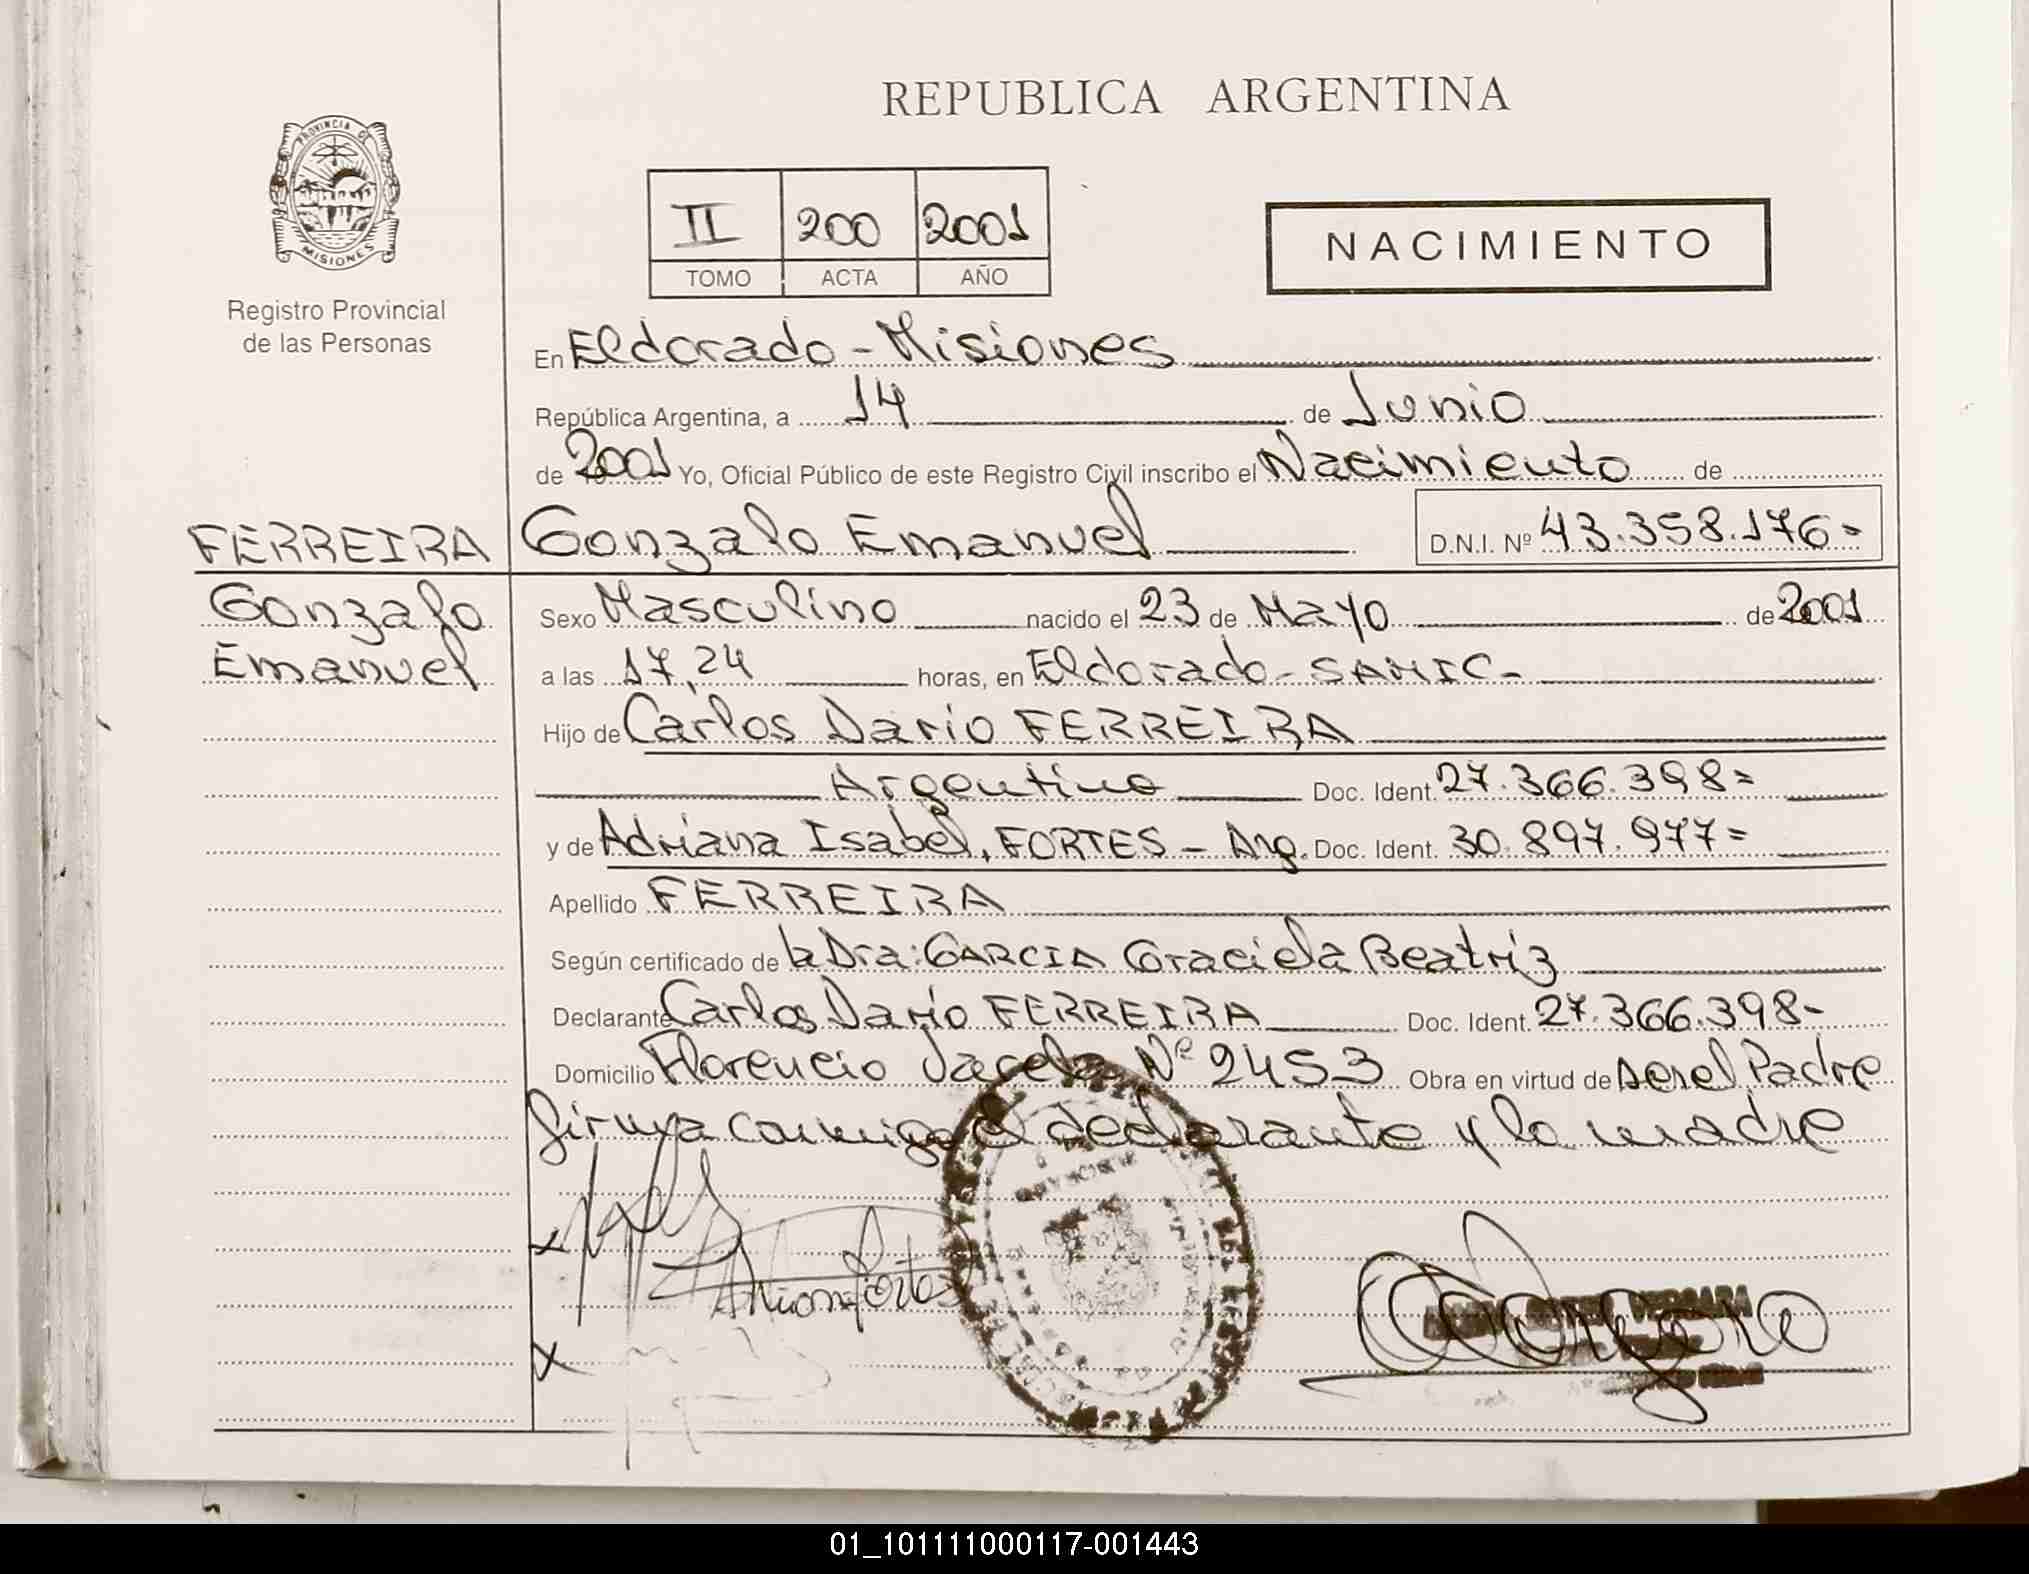 REPUBLICA ARGENTINA
PROVINCIA DE
MISIONES
Registro Provincial
de las Personas
II 200 2001
TOMO ACTA AÑO
NACIMIENTO
En Eldorado - Misiones
República Argentina, a 14 de Junio
de 2001 Yo, Oficial Público de este Registro Civil inscribo el Nacimiento de
FERREIRA Gonzalo Emanuel D.N.I. Nº 43.358.176=
Gonzalo Sexo Masculino nacido el 23 de Mayo de 2001
Emanuel a las 17,24 horas, en Eldorado - SAMIC-
Hijo de Carlos Dario FERREIRA
Argentino Doc. Ident. 27.366.398=
y de Adriana Isabel, FORTES - Arg. Doc. Ident. 30.897.977=
Apellido FERREIRA
Según certificado de la Dra: GARCIA Graciela Beatriz
Declarante Carlos Dario FERREIRA Doc. Ident. 27.366.398-
Domicilio Florencio Nº 2453 Obra en virtud de ser el Padre
firma conmigo el declarante y la madre
x
x
01_101111000117-001443